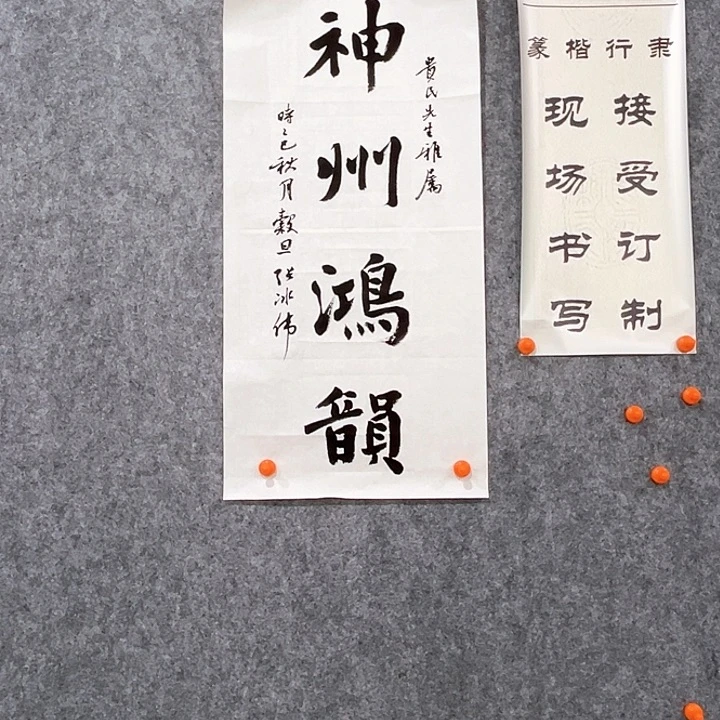 貴民先生雅屬
神州鴻韻
時乙巳秋月穀旦 张冰伟
隶行楷篆
接受订制
现场书写